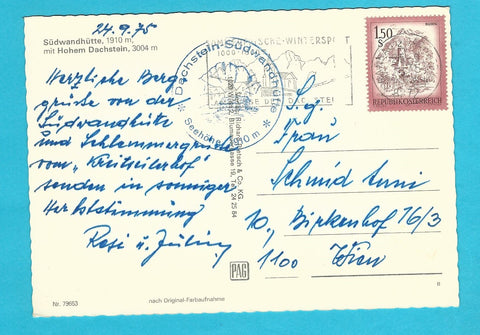 24.9.75
Südwandhütte, 1910 m,
mit Hohem Dachstein, 3004 m
Herzliche Berg
grüße von der
Südwandhütte
und Schlemmergrüße
vom
senden in sonniger
Herbststimmung
Resi u.
Dachstein-Südwandhütte
Seehöhe 1910 m
WINTERSPORT
1,50
S
REPUBLIK ÖSTERREICH
& Co. KG.
Tel. 24 25 84
S.g.
Frau
Schmid Anni
10., Birkenhof 76/3
1100 Wien
PAG
Nr. 79653
nach Original-Farbaufnahme